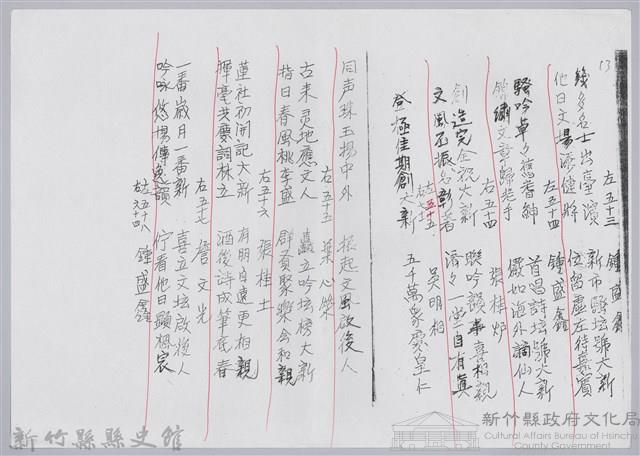 13
左五十三 鍾盛鑫
幾多名士出臺濱 新市騷壇號大新
他日文場添健將 位留虛左待嘉賓
左五十四 鍾盛鑫
騷吟卓夕舊耆紳 首唱詩坛號大新
錦繡文章歸老手 儼如海外謫仙人
右五十四 張桂炉
創造完全祝大新 聯吟設事喜相親
文風丕振名彰著 濟々一堂自有真
五十五 吳明相
登極佳期創大新 五千萬眾慶皇仁
同声珠玉揚中外 振起文風啟後人
右五十五 葉心榮
古来灵地應文人 矗立吟坛榜大新
指日春風桃李盛 群賢聚樂会和親
右五十六 張桂土
蓮社初開記大新 有朋自遠更相親
揮毫共慶詞林立 酒後詩成筆底春
右五十七 詹文光
一番歲月一番新 喜立文坛啟後人
吟咏悠揚傳逸韻 佇看他日顯楓宸
左五十八 鍾盛鑫
右六十四
新竹縣縣史館
新竹縣政府文化局
Cultural Affairs Bureau of Hsinchu County Government